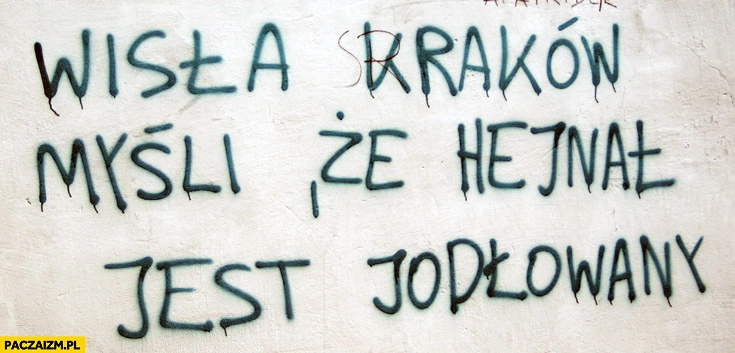 WISŁA KRAKÓW
MYŚLI ,ŻE HEJNAŁ
JEST JODŁOWANY
PACZAIZM.PL